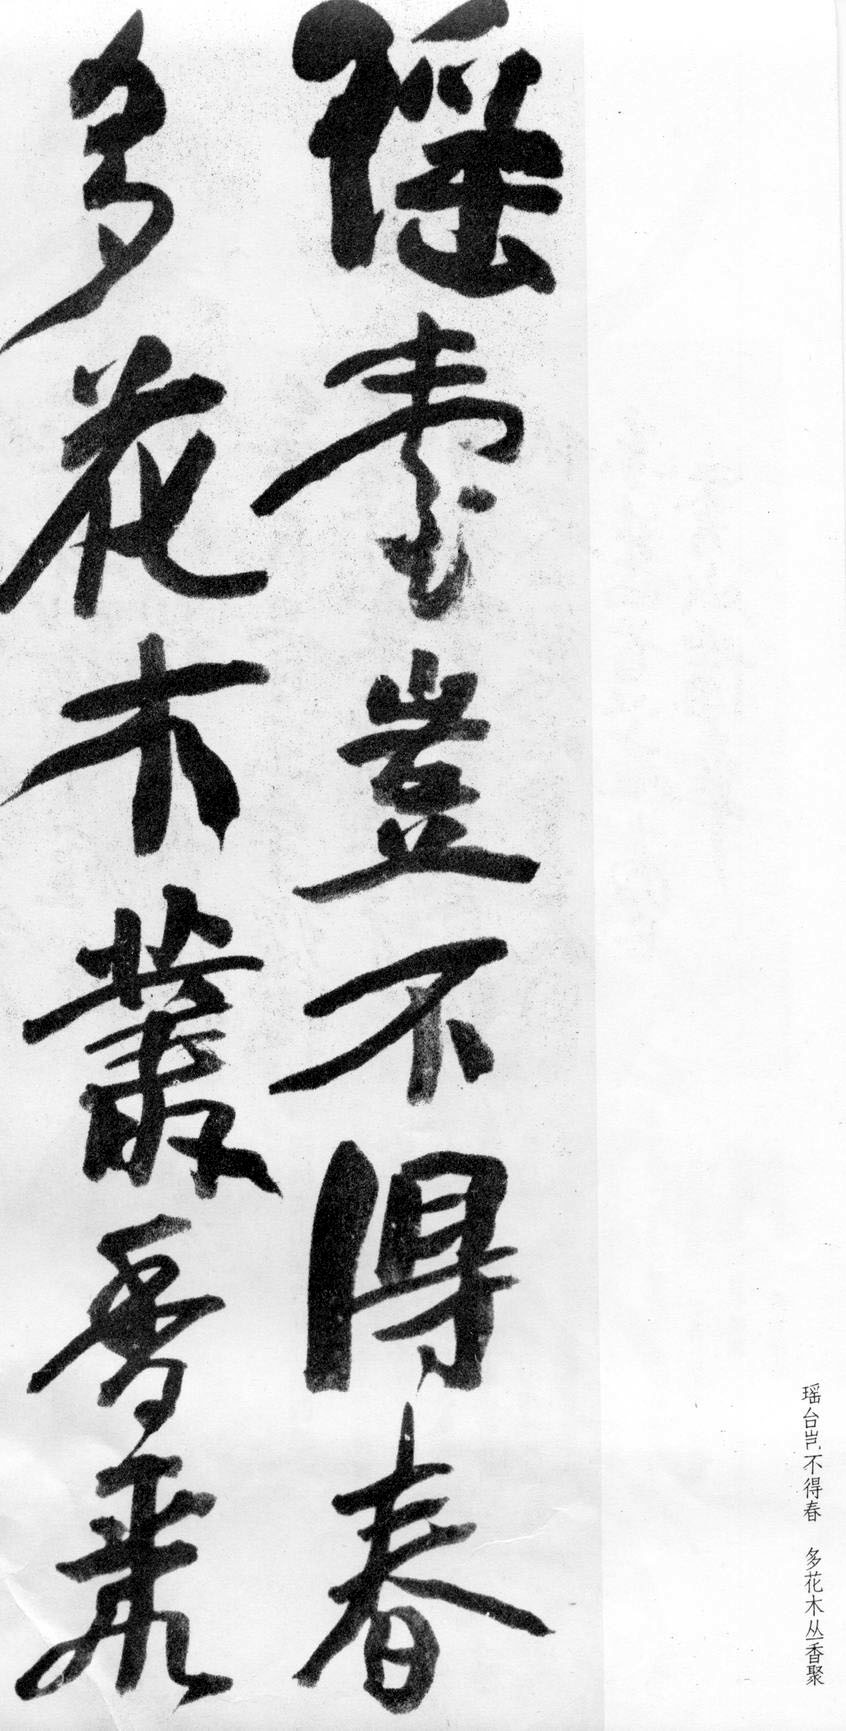 瑶臺豈不得春
多花木叢香聚
瑶台岂不得春 多花木丛香聚